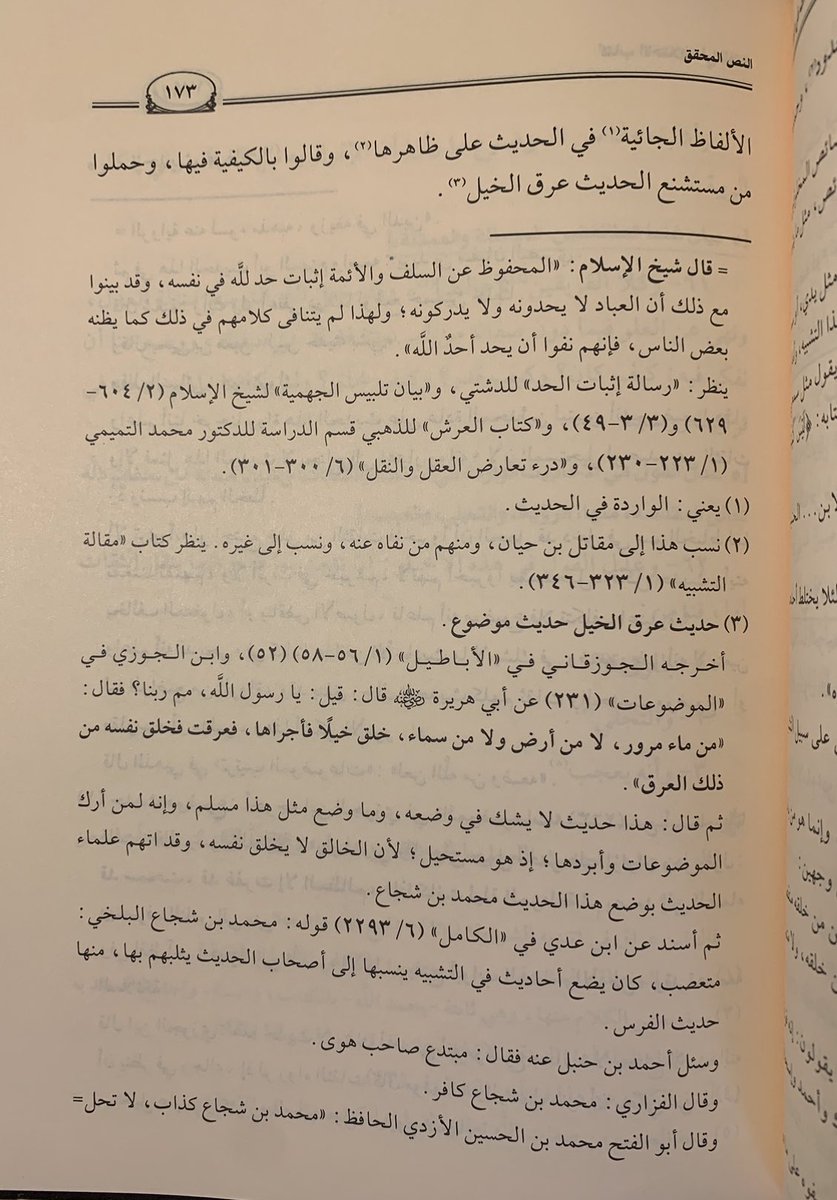 النص المحقق
١٧٣
الألفاظ الجائية(١) في الحديث على ظاهرها(٢)، وقالوا بالكيفية فيها، وحملوا
من مستشنع الحديث عرق الخيل(٣).
= قال شيخ الإسلام: «المحفوظ عن السلف والأئمة إثبات حد للَّه في نفسه، وقد بينوا
مع ذلك أن العباد لا يحدونه ولا يدركونه؛ ولهذا لم يتنافى كلامهم في ذلك كما يظنه
بعض الناس، فإنهم نفوا أن يحد أحدٌ اللَّه».
ينظر: «رسالة إثبات الحد» للدشتي، و«بيان تلبيس الجهمية» لشيخ الإسلام (٢/ ٦٠٤-
٦٢٩) و(٣/ ٣-٤٩)، و«كتاب العرش» للذهبي قسم الدراسة للدكتور محمد التميمي
(١/ ٢٢٣-٢٣٠)، و«درء تعارض العقل والنقل» (٦/ ٣٠٠-٣٠١).
(١) يعني: الواردة في الحديث.
(٢) نسب هذا إلى مقاتل بن حيان، ومنهم من نفاه عنه، ونسب إلى غيره. ينظر كتاب «مقالة
التشبيه» (١/ ٣٢٣-٣٤٦).
(٣) حديث عرق الخيل حديث موضوع.
أخرجه الجوزقاني في «الأباطيل» (١/ ٥٦-٥٨) (٥٢)، وابن الجوزي في
«الموضوعات» (٢٣١) عن أبي هريرة رضي الله عنه قال: قيل: يا رسول اللَّه، مم ربنا؟ فقال:
«من ماء مرور، لا من أرض ولا من سماء، خلق خيلًا فأجراها، فعرقت فخلق نفسه من
ذلك العرق».
ثم قال: هذا حديث لا يشك في وضعه، وما وضع مثل هذا مسلم، وإنه لمن أرك
الموضوعات وأبردها؛ إذ هو مستحيل؛ لأن الخالق لا يخلق نفسه، وقد اتهم علماء
الحديث بوضع هذا الحديث محمد بن شجاع.
ثم أسند عن ابن عدي في «الكامل» (٦/ ٢٢٩٣) قوله: محمد بن شجاع البلخي:
متعصب، كان يضع أحاديث في التشبيه ينسبها إلى أصحاب الحديث يثلبهم بها، منها
حديث الفرس.
وسئل أحمد بن حنبل عنه فقال: مبتدع صاحب هوى.
وقال الفزاري: محمد بن شجاع كافر.
وقال أبو الفتح محمد بن الحسين الأزدي الحافظ: «محمد بن شجاع كذاب، لا تحل=